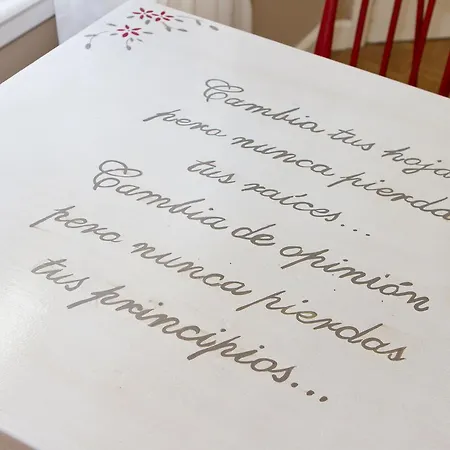 Cambia tus hoja
pero nunca pierda
tus raíces...
Cambia de opinión
pero nunca pierdas
tus principios...